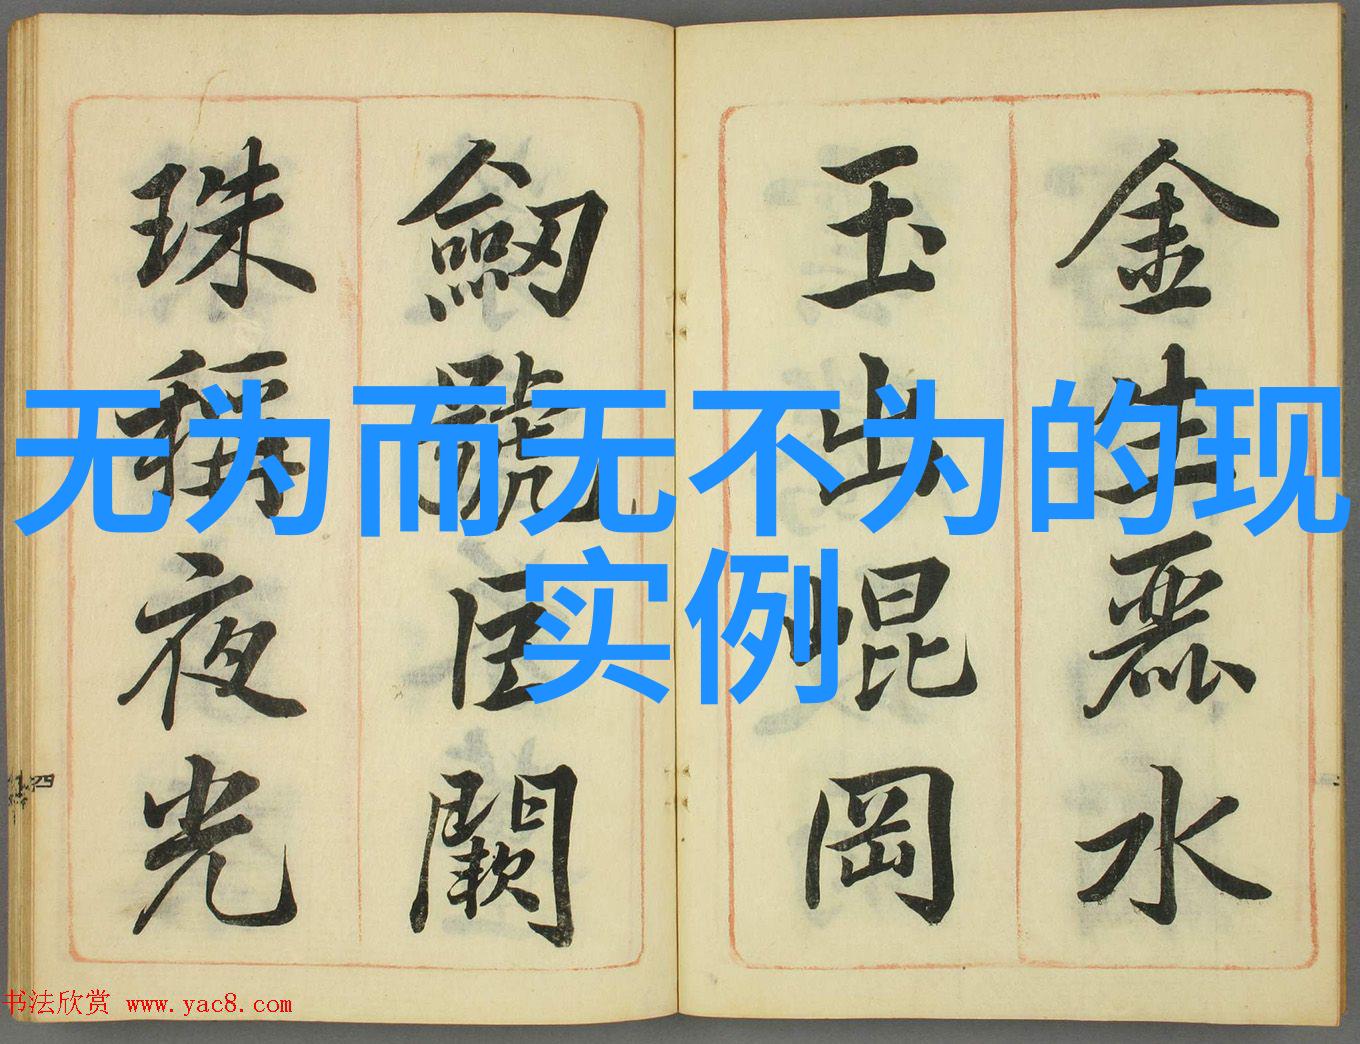 金生麗水
玉出崐岡
劒號巨闕
珠稱夜光
无为而无不为的现
实例
书法欣赏 www.yac8.com